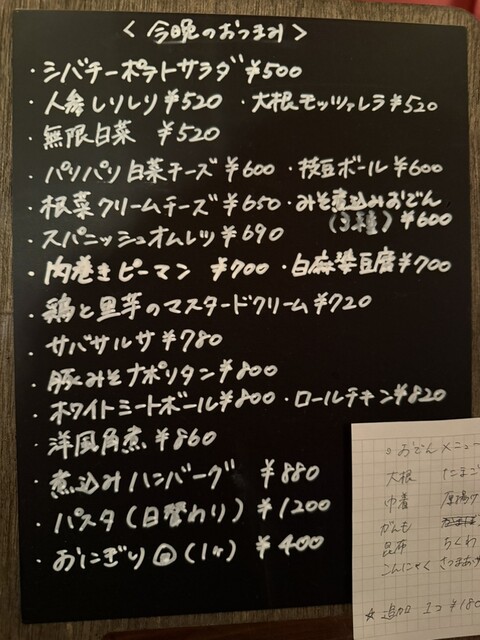 ＜今晩のおつまみ＞
・シバチーポテトサラダ ¥500
・人参しりしり ¥520 ・大根モッツァレラ ¥520
・無限白菜 ¥520
・パリパリ白菜チーズ ¥600 ・枝豆ボール ¥600
・根菜クリームチーズ ¥650 ・みそ煮込みおでん
(3種) ¥600
・スパニッシュオムレツ ¥690
・肉巻きピーマン ¥700 ・白麻婆豆腐 ¥700
・鶏と里芋のマスタードクリーム ¥720
・サバサルサ ¥780
・豚みそナポリタン ¥800
・ホワイトミートボール ¥800 ・ロールチキン ¥820
・洋風角煮 ¥860
・煮込みハンバーグ ¥880
・パスタ(日替わり) ¥1200
・おにぎり (1ケ) ¥400
おでんメニュー
大根 たまご
巾着 厚揚げ
がんも
昆布 ちくわ
こんにゃく さつまあげ
☆追加 1コ ¥180